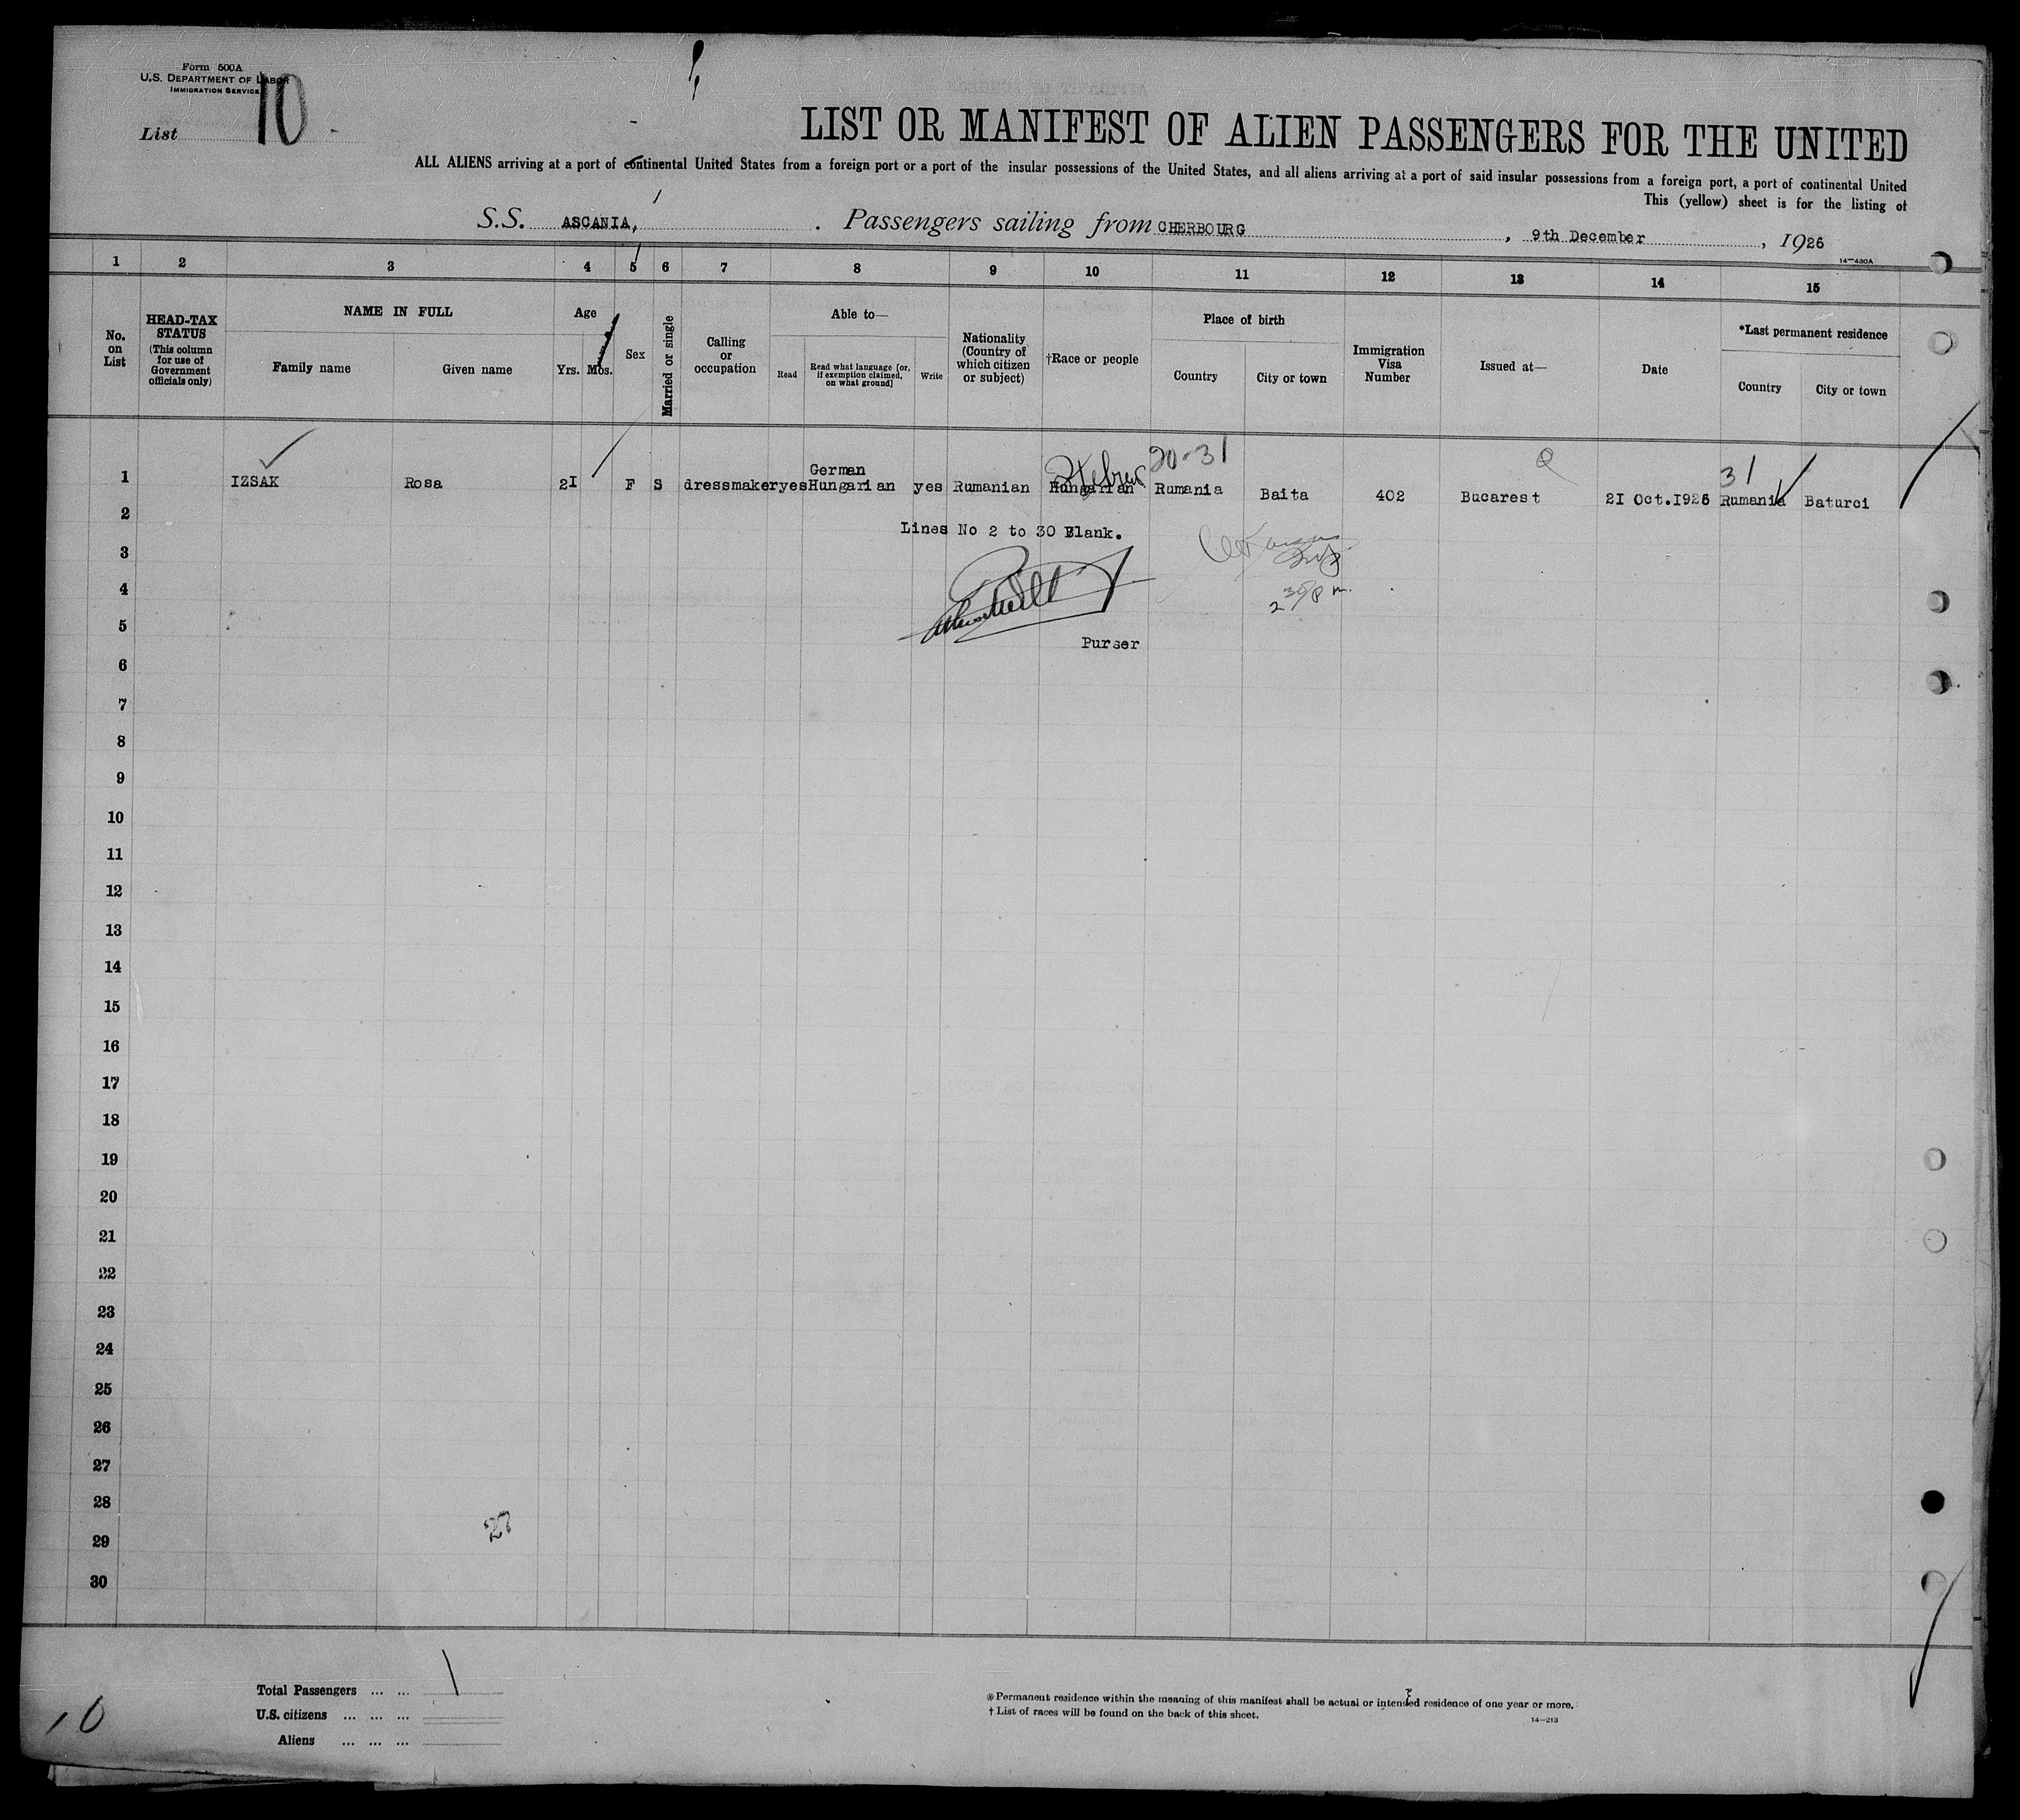 Form 500A
U.S. DEPARTMENT OF LABOR
IMMIGRATION SERVICE
List 10
LIST OR MANIFEST OF ALIEN PASSENGERS FOR THE UNITED
ALL ALIENS arriving at a port of continental United States from a foreign port or a port of the insular possessions of the United States, and all aliens arriving at a port of said insular possessions from a foreign port, a port of continental United
This (yellow) sheet is for the listing of
S.S. ASCANIA, . Passengers sailing from CHERBOURG , 9th December , 1926
14—430A
1 2 3 4 5 6 7 8 9 10 11 12 13 14 15
No. on List
HEAD-TAX STATUS (This column for use of Government officials only)
NAME IN FULL
Family name Given name
Age
Yrs. Mos.
Sex
Married or single
Calling or occupation
Able to—
Read
Read what language [or, if exemption claimed, on what ground]
Write
Nationality (Country of which citizen or subject)
†Race or people
Place of birth
Country City or town
Immigration Visa Number
Issued at—
Date
*Last permanent residence
Country City or town
Hebrew 20-31 31
German
1 IZSAK Rosa 2I F S dressmaker yes Hungarian yes Rumanian Hungarian Rumania Baita 402 Bucarest 2I Oct.I926 Rumania Baturci
2
Lines No 2 to 30 Blank.
3
4
2 30 P m.
5
Purser
6
7
8
9
10
11
12
13
14
15
16
17
18
19
20
21
22
23
24
25
26
27
28
27
29
30
Total Passengers ... ... 1
U.S. citizens ... ... ...
Aliens ... ... ...
10
*Permanent residence within the meaning of this manifest shall be actual or intended residence of one year or more.
† List of races will be found on the back of this sheet.
14—213